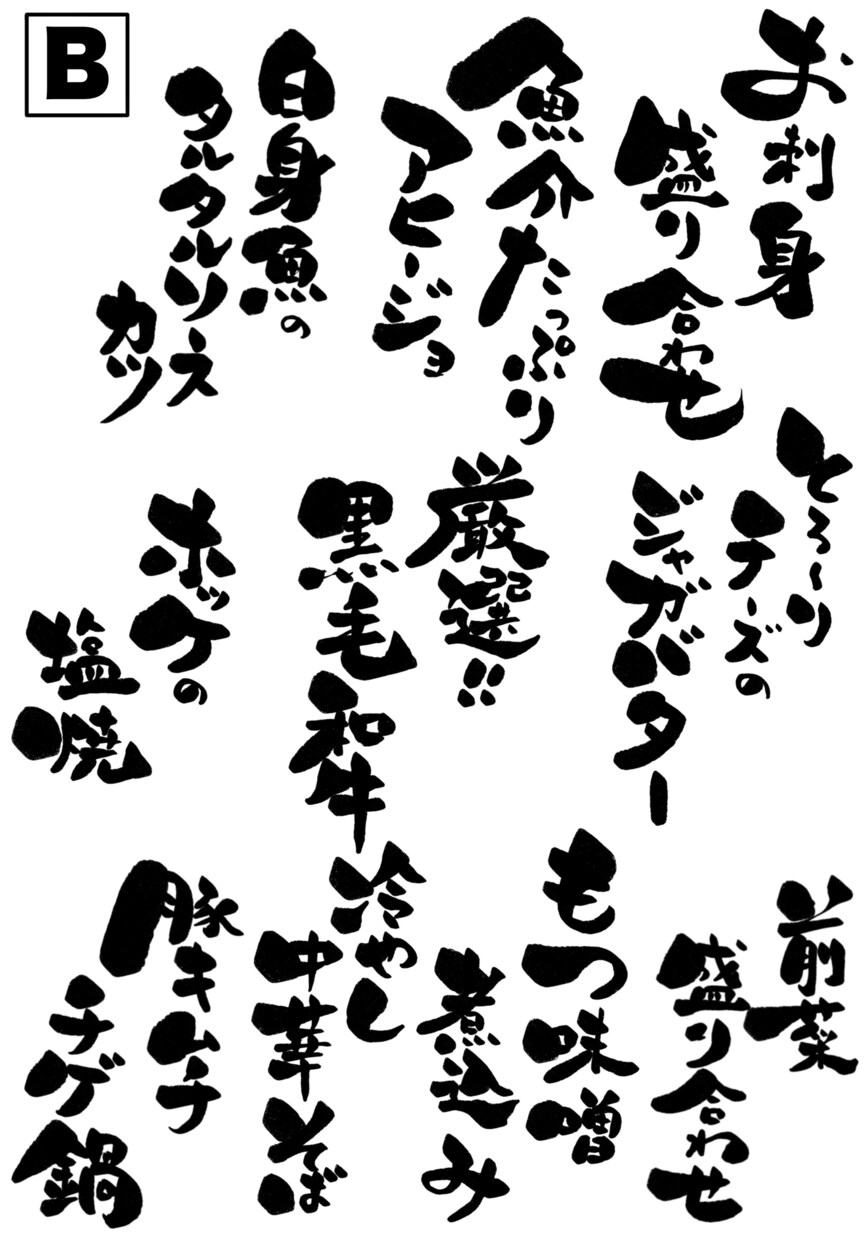 B
お刺身
盛り合わせ
魚介たっぷり
アヒージョ
白身魚の
タルタルソース
カツ
とろ~り
チーズの
ジャガバター
厳選!!
黒毛和牛
ホッケの
塩焼
前菜
盛り合わせ
もつ味噌
煮込み
冷やし
中華そば
豚キムチ
チゲ鍋